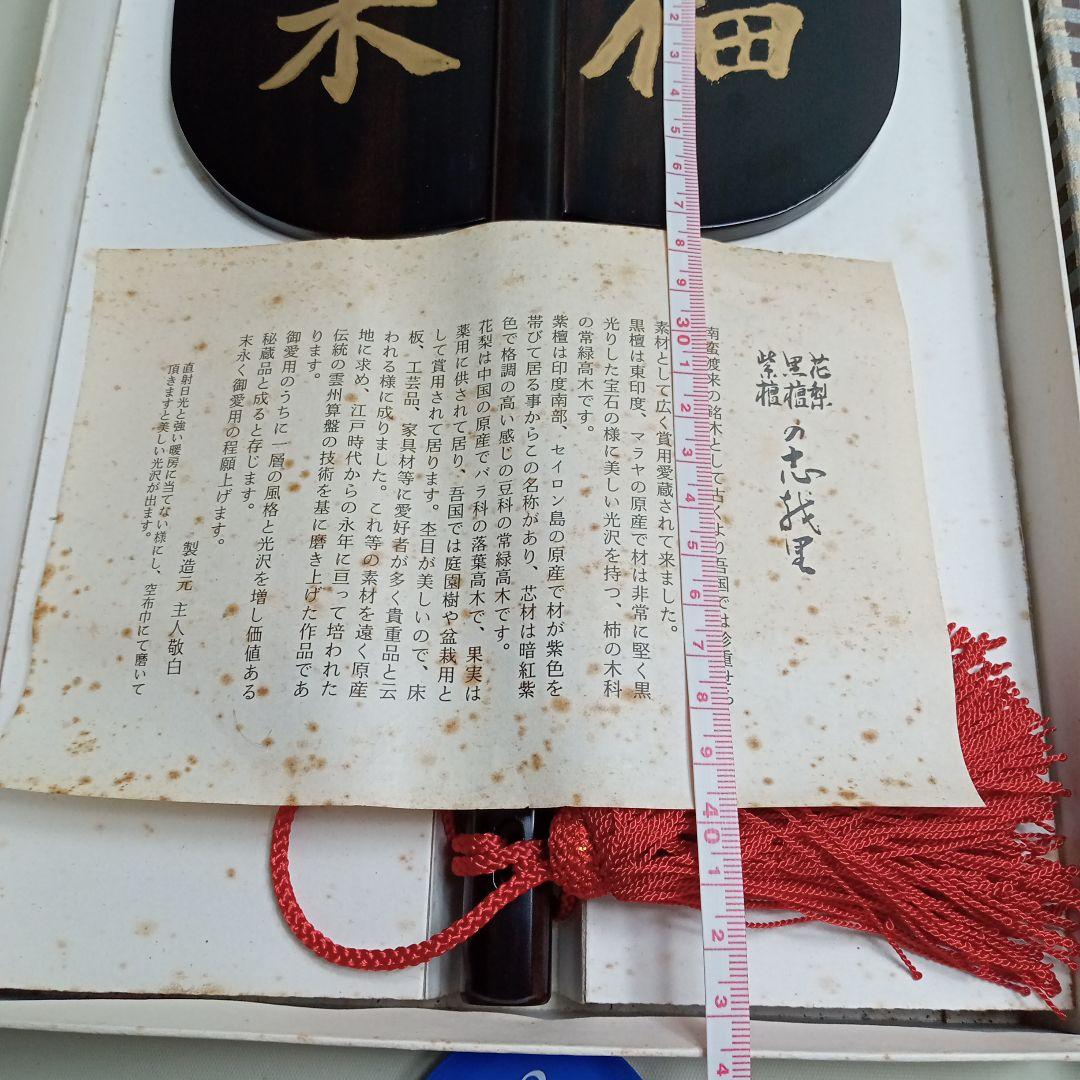 花梨
黒檀
紫檀
の志越里
南蛮渡来の銘木として古くより吾国では珍重せら
素材として広く賞用愛蔵されて来ました。
黒檀は東印度、マラヤの原産で材は非常に堅く黒
光りした宝石の様に美しい光沢を持つ、柿の木科
の常緑高木です。
紫檀は印度南部、セイロン島の原産で材が紫色を
帯びて居る事からこの名称があり、芯材は暗紅紫
色で格調の高い感じの豆科の常緑高木です。
花梨は中国の原産でバラ科の落葉高木で、果実は
薬用に供されて居り、吾国では庭園樹や盆栽用と
して賞用されて居ります。杢目が美しいので、床
板、工芸品、家具材等に愛好者が多く貴重品と云
われる様に成りました。これ等の素材を遠く原産
地に求め、江戸時代からの永年に亘って培われた
伝統の雲州算盤の技術を基に磨き上げた作品であ
ります。
御愛用のうちに一層の風格と光沢を増し価値ある
秘蔵品と成ると存じます。
末永く御愛用の程願上げます。
製造元 主人敬白
直射日光と強い暖房に当てない様にし、空布巾にて磨いて
頂きますと美しい光沢が出ます。
2 3 4 5 6 7 8 9 30 1 2 3 4 5 6 7 8 9 40 1 2 3 4